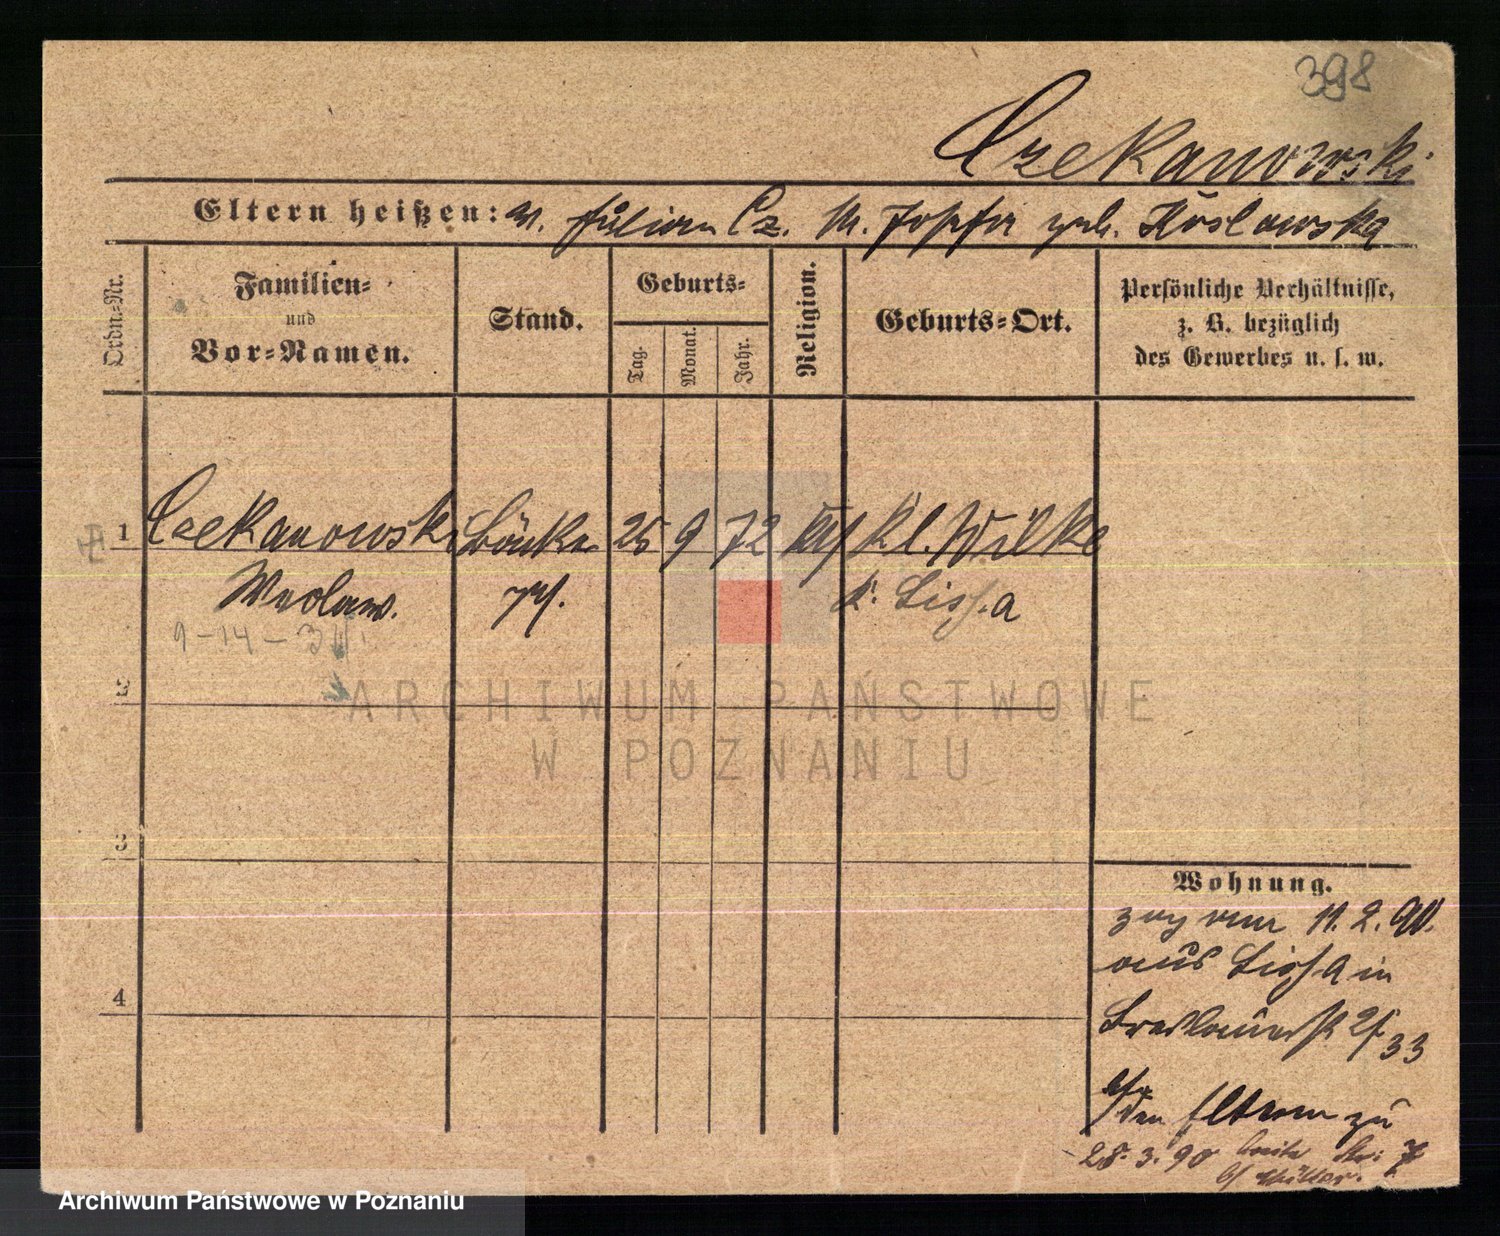 398
Czekanowski
Eltern heißen: V. Julian Cz. M. Josefa geb. Koslowska
Ordn.-Nr.
Familien-
und
Vor-Namen.
Stand.
Geburts-
Tag.
Monat.
Jahr.
Religion.
Geburts-Ort.
Persönliche Verhältnisse,
z. B. bezüglich
des Gewerbes u. s. w.
1
Czekanowski
25 9 72 Kl. Wilke
K. Lissa
9-14-3
2
3
4
Wohnung.
zog am 11. 2. 90.
aus Lissa in
Breslauerstr 33
b/ den Eltern zu
28. 3. 90 7
b/ Müller.
ARCHIWUM PAŃSTWOWE
W POZNANIU
Archiwum Państwowe w Poznaniu